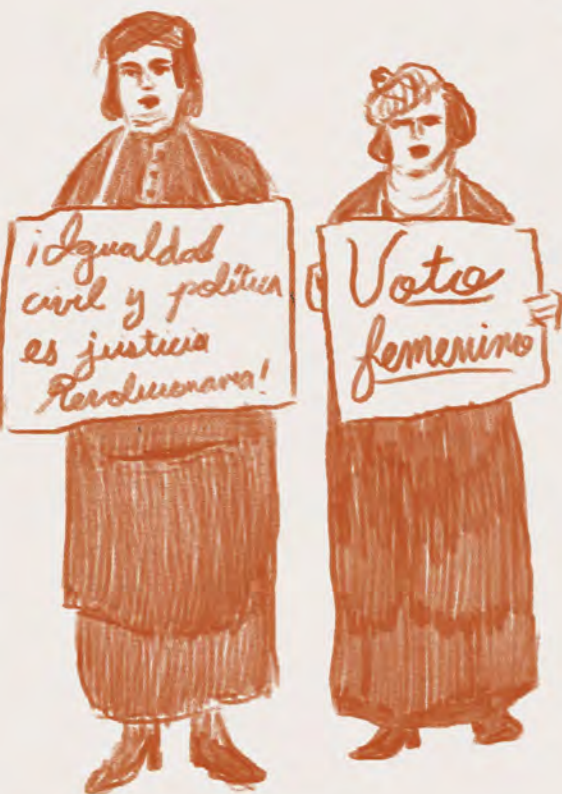 ¡Igualdad
civil y política
es justicia
Revolucionaria!
Voto
femenino